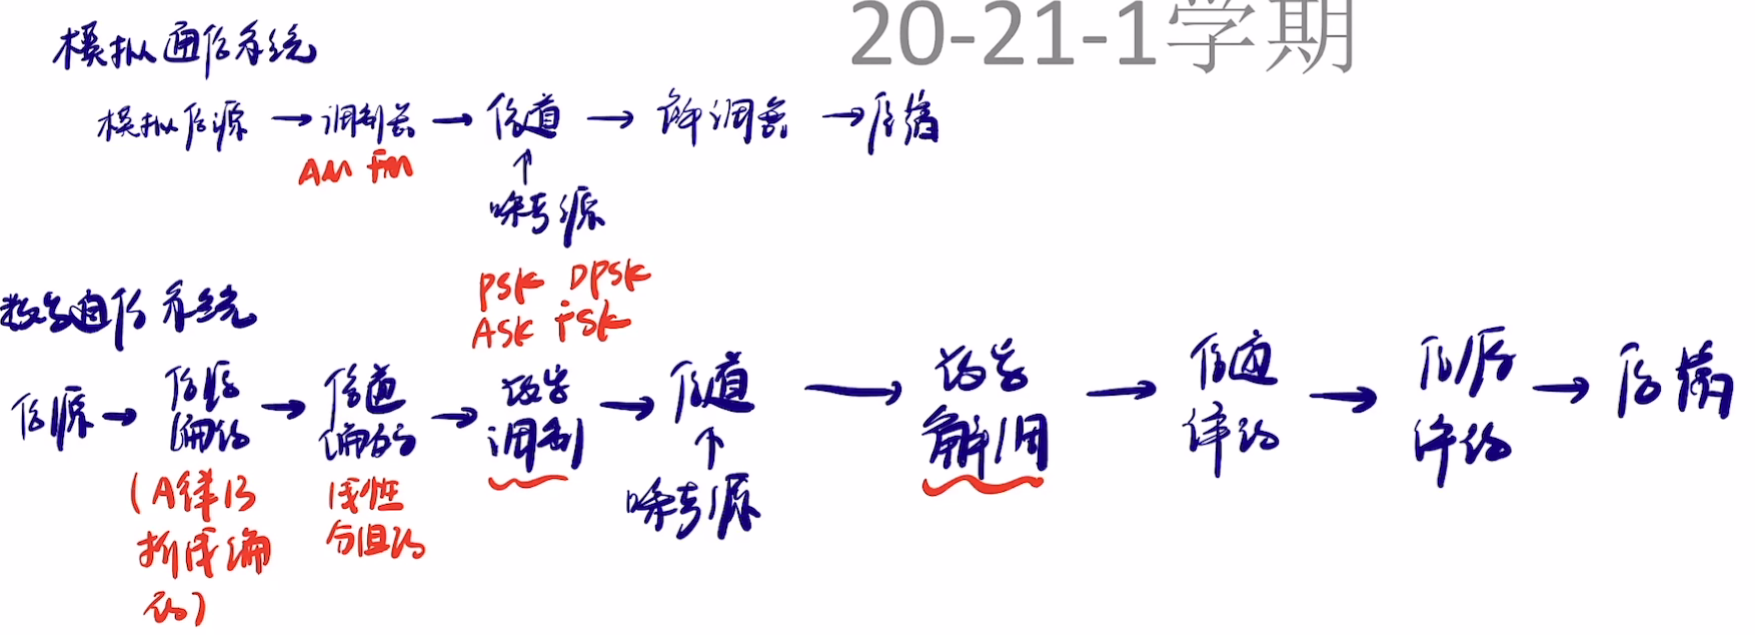 20-21-1学期
模拟通信系统
模拟信源 → 调制器 → 信道 → 解调器 → 信宿
AM FM
↑
噪声源
数字通信系统
PSK DPSK
ASK FSK
信源 → 信源编码 → 信道编码 → 数字调制 → 信道 → 数字解调 → 信道译码 → 信源译码 → 信宿
↑
噪声源
(A律13
折线编
码)
线性
分组码